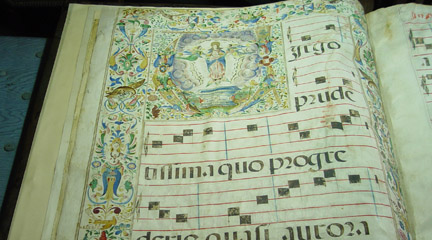 irgo
prudē
tissima quo progre
deris quasi aurora